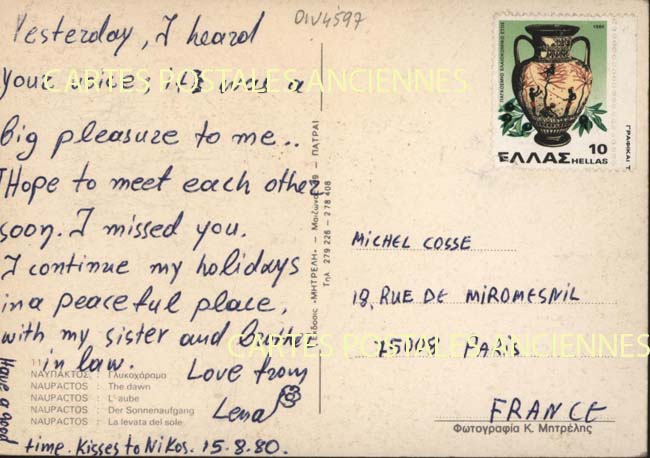 Yesterday, I heard
your voice it was a
big pleasure to me..
Hope to meet each other
soon. I missed you.
I continue my holidays
in a peaceful place,
with my sister and
in law.
Love from
Lena
Have a good
time. Kisses to Nikos. 15.8.80.
11
ΝΑΥΠΑΚΤΟΣ : Γλυκοχάραμα
NAUPACTOS : The dawn
NAUPACTOS : L'aube
NAUPACTOS : Der Sonnenaufgang
NAUPACTOS : La levata del sole
DIV4597
Έκδοσις «ΜΗΤΡΕΛΗ» — Μαιζώνος 9 — ΠΑΤΡΑΙ
Τηλ. 279 226 - 278 408
1980
10
ΕΛΛΑΣ HELLAS
MICHEL COSSE
18, RUE DE MIROMESNIL
75008 PARIS
FRANCE
Φωτογραφία Κ. Μητρέλης
CARTES POSTALES ANCIENNES
CARTES POSTALES ANCIENNES